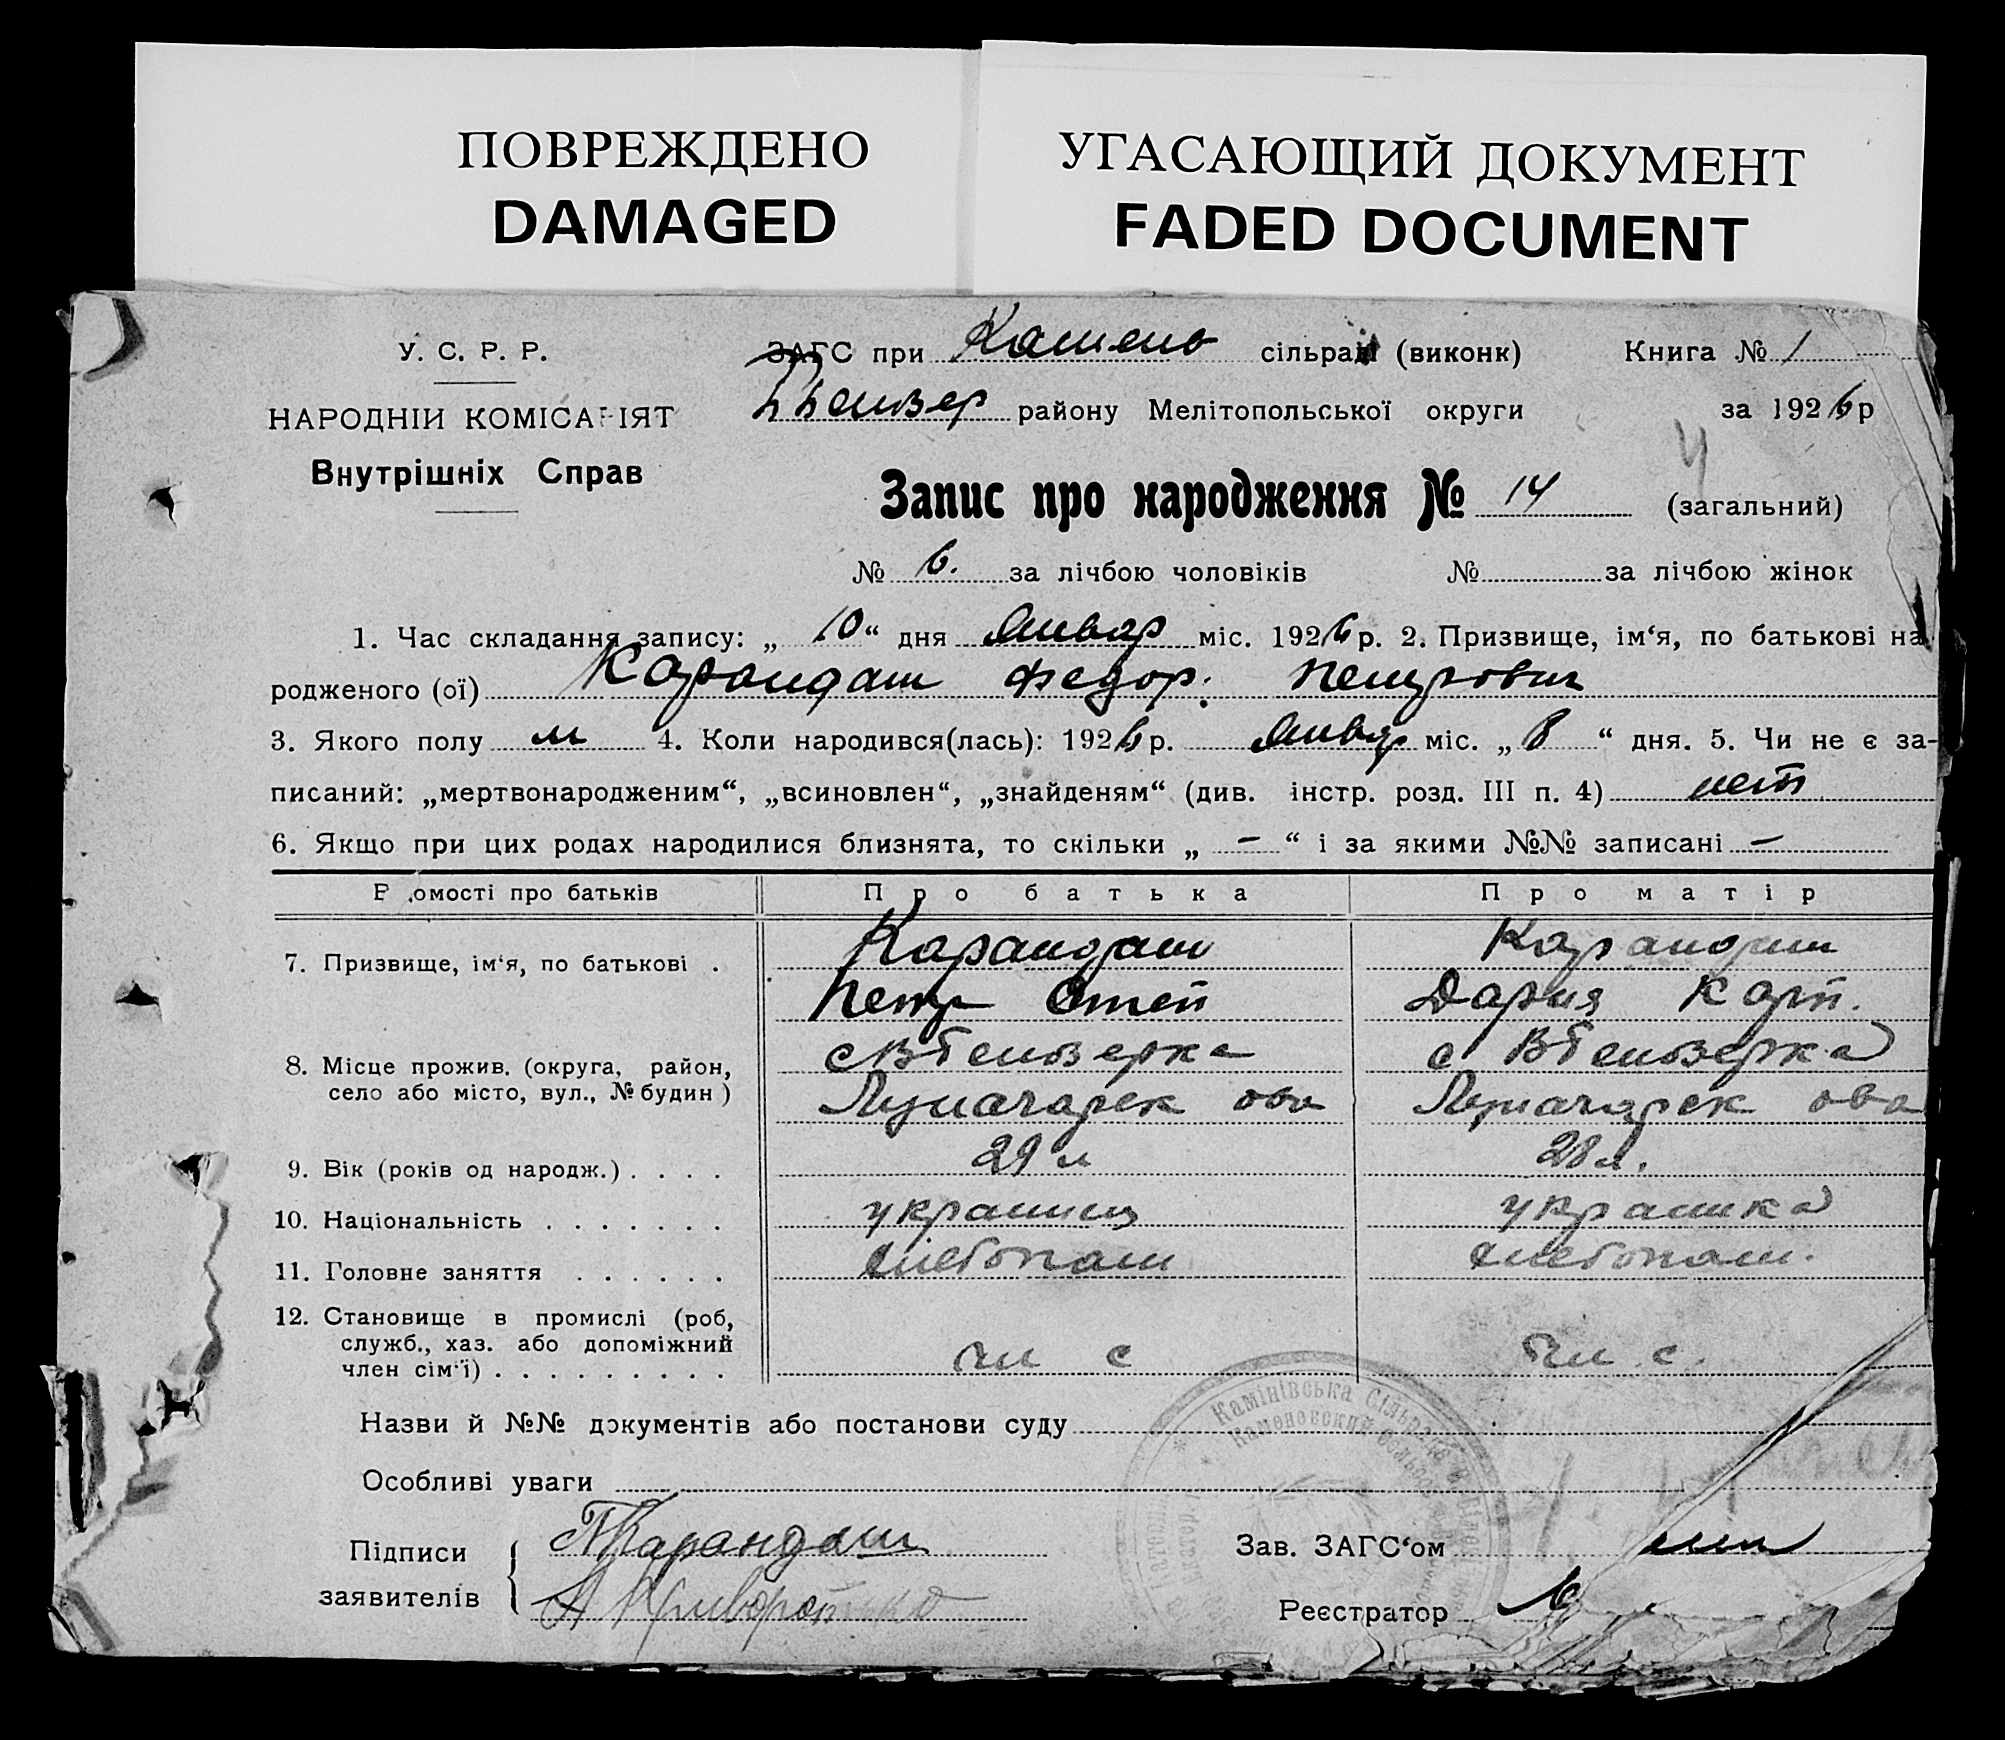 ПОВРЕЖДЕНО
DAMAGED
УГАСАЮЩИЙ ДОКУМЕНТ
FADED DOCUMENT
У. С. Р. Р.
НАРОДНІЙ КОМІСАРІЯТ
Внутрішніх Справ
ЗАГС при Камено сільраді (виконк) Книга № 1
району Мелітопольської округи за 1926 р
Запис про народження № 14 (загальний)
4
№ 6. за лічбою чоловіків № за лічбою жінок
1. Час складання запису: „ 10 “ дня Январ міс. 1926 р. 2. Призвище, ім‘я, по батькові на-
родженого (ої) Карандаш Федор. Петрович
3. Якого полу м 4. Коли народився(лась): 1926 р. Январ міс. „ 8 “ дня. 5. Чи не є за-
писаний: „мертвонародженим“, „всиновлен“, „знайденям“ (див. інстр. розд. III п. 4) нет
6. Якщо при цих родах народилися близнята, то скільки „ – “ і за якими №№ записані –
Відомості про батьків Про батька Про матір
7. Призвище, ім‘я, по батькові . Карандаш Карандаш
Петр Степ Дария Карп.
8. Місце прожив. (округа, район, село або місто, вул., № будин ) с с
Луначарск ова Луначарск ова
9. Вік (років од народж.) . . . . 29 л 28 л.
10. Національність . . . . . . . украинец украинка
11. Головне заняття . . . . . . хлебопаш хлебопаш.
12. Становище в промислі (роб, служб., хаз. або допоміжний член сім‘ї) . . . . . . . . . чл с чл. с.
Назви й №№ документів або постанови суду
Камінівська Сільрада
Каменовский
Особливі уваги
Підписи заявителів
П Карандаш
А Криворотько
Зав. ЗАГС‘ом
Реєстратор